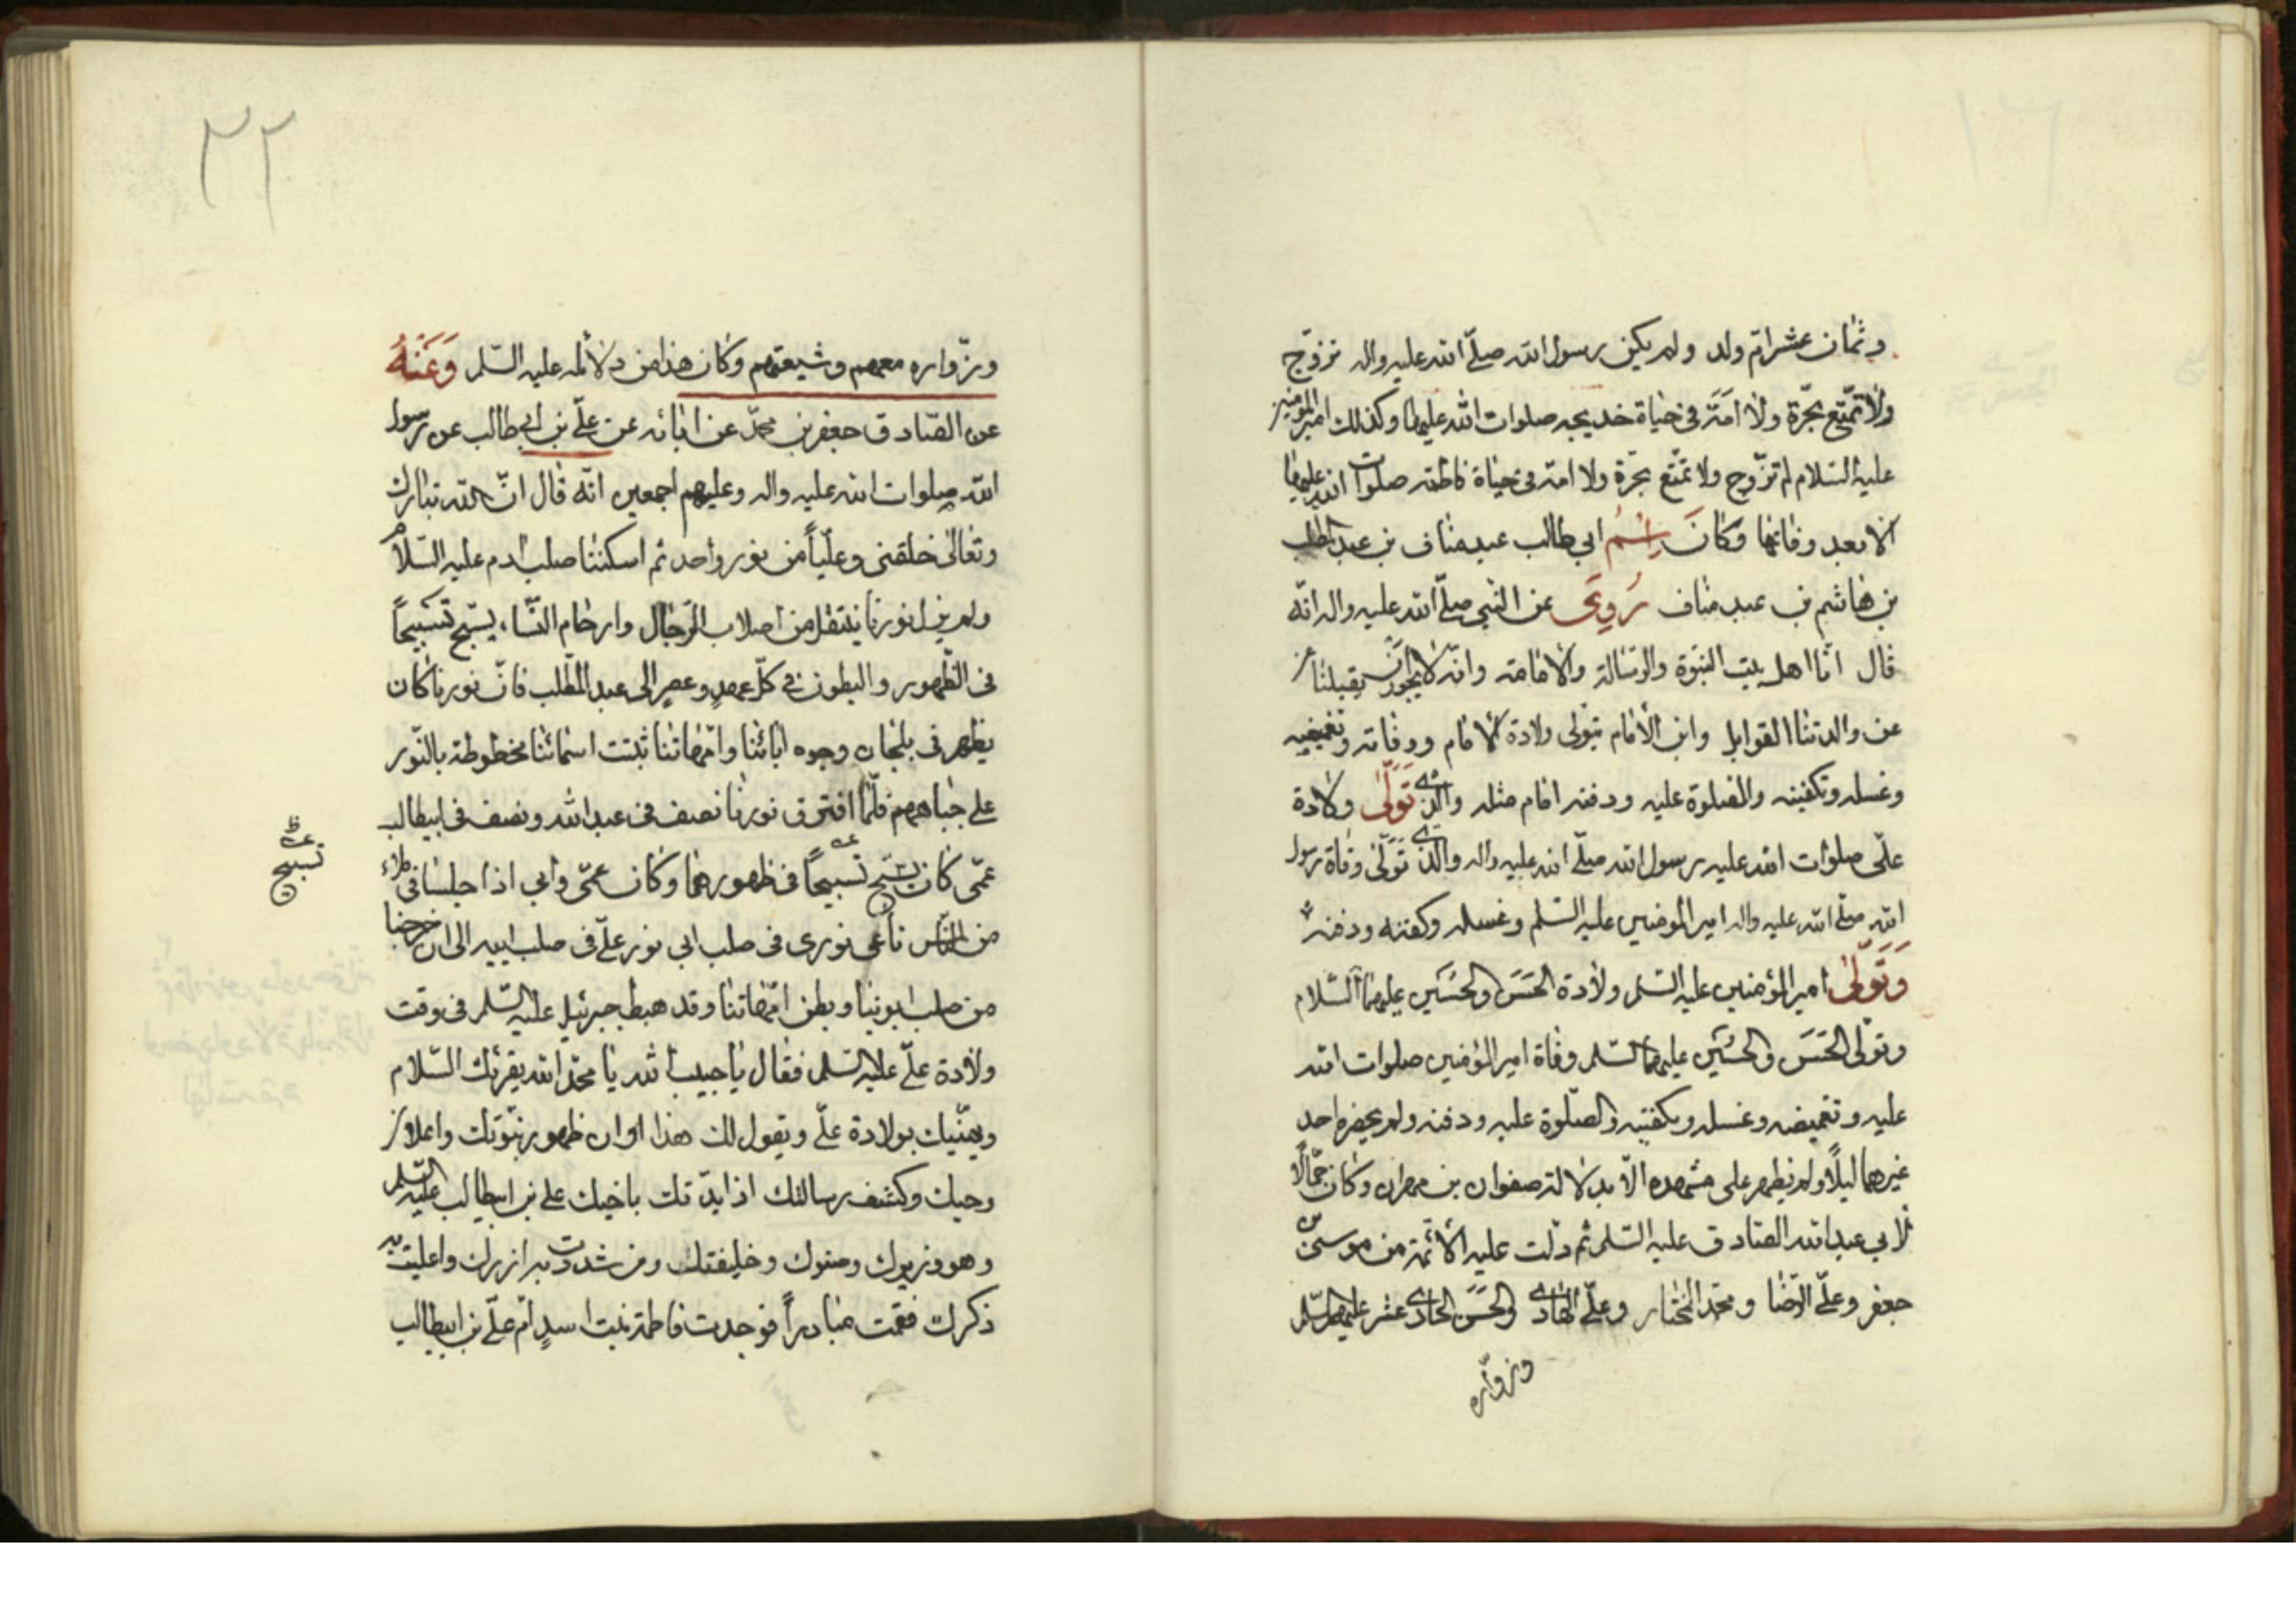 وثمان عشر امّ ولد ولم يكن رسول الله صلّى الله عليه واله تزوّج
ولا تمتّع بحرّة ولا امَة في حياة خديجه صلوات الله عليها وكذلك امير المؤمنين
عليه السّلام لم تزوّج ولا تمتّع بحرّة ولا امة في حياة فاطمه صلوات الله عليها
الا بعد وفاتها وكانَ اِسْمُ ابي طالب عبد مناف بن عبد المطلب
بن هاشم بن عبد مناف رُوِيَ عن النبي صلّى الله عليه واله انّه
قال انّا اهل بيت النبوّة والرّسالة والامامة وانّه لا يجوز ان يقبلنا
عن والدتنا القوابل وان الامام يتولّى ولادة الامام ووفاته وتغميضه
وغسله وتكفينه والصلوة عليه ودفنه امام مثله والّذي تَولّى ولادة
علّى صلوات الله عليه رسول الله صلّى الله عليه واله والّذي تَولّى وفاة رسول
الله صلّى الله عليه واله امير المؤمنين عليه السّلم وغسله وكفنه ودفنه
وَتَولّى امير المؤمنين عليه السّلم ولادة الحَسَن والحُسَين عليهما السّلام
وتولّى الحَسَن والحُسَين عليهما السّلم وفاة امير المؤمنين صلوات الله
عليه وتغميضه وغسله وتكفينه والصّلوة عليه ودفنه ولم يحضره احد
غيرهما ليلًا ولم يظهر على مشهده الّا بدلالة صفوان بن مهران وكان جمّالًا
لابي عبد الله الصّادق عليه السّلم ثم دلّت عليه الائمّة من موسى بن
جعفر وعلّي الرّضا ومحمّد المختار وعلّي الهادي والحَسَن الحادي عشر عليهم السّلم
وزوّاره
٣٢
وزوّاره معهم وشيعتهم وكان هذا من دلائله عليه السّلم وَعَنْهُ
عن الصّادق جعفر بن محمّد عن ابائه عن علّي بن ابي طالب عن رسول
الله صلوات الله عليه واله وعليهم اجمعين انّه قال انّ الله تبارك
وتعالى خلقنى وعليّاً من نور واحد ثم اسكننا صلب ادم عليه السّلام
ولم يزل نورنا ينتقل من اصلاب الرّجال وارحام النّساء يسبّح تسبيحاً
فى الظّهور والبطون في كلّ عهدٍ وعصرٍ الى عبد المطّلب فانّ نورنا كان
يظهر فى بلجان وجوه ابائنا وامّهاتنا ثبتت اسمائنا مخطوطة بالنّور
على جباههم فلمّا افترق نورنا نصف فى عبد الله ونصف فى ابيطالب
عمّى كان يسبّح تسبيحاً فى ظهورهما وكان عمّى وابي اذا جلسا فى ملاء
من النّاس ناغى نورى فى صلب ابي نور علّى فى صلب ابيه الى ان خرجنا
من صلب ابوينا وبطن امّهاتنا وقد هبط جبرئيل عليه السّلم فى وقت
ولادة علّي عليه السّلم فقال يا حبيب الله يا محمّد الله يقرئك السّلام
ويهنّيك بولادة علّي ويقول لك هذا اوان ظهور نبوّتك واعلان
وحيك وكشف رسالتك اذ ايدّتك باخيك علي بن ابيطالب عليه السّلم
وهو وزيرك وصنوك وخليفتك ومن شددت به ازرك واعليت به
ذكرك فقمت مبادراً فوجدت فاطمة بنت اسدٍ امّ علّي بن ابيطالب
تسبيح